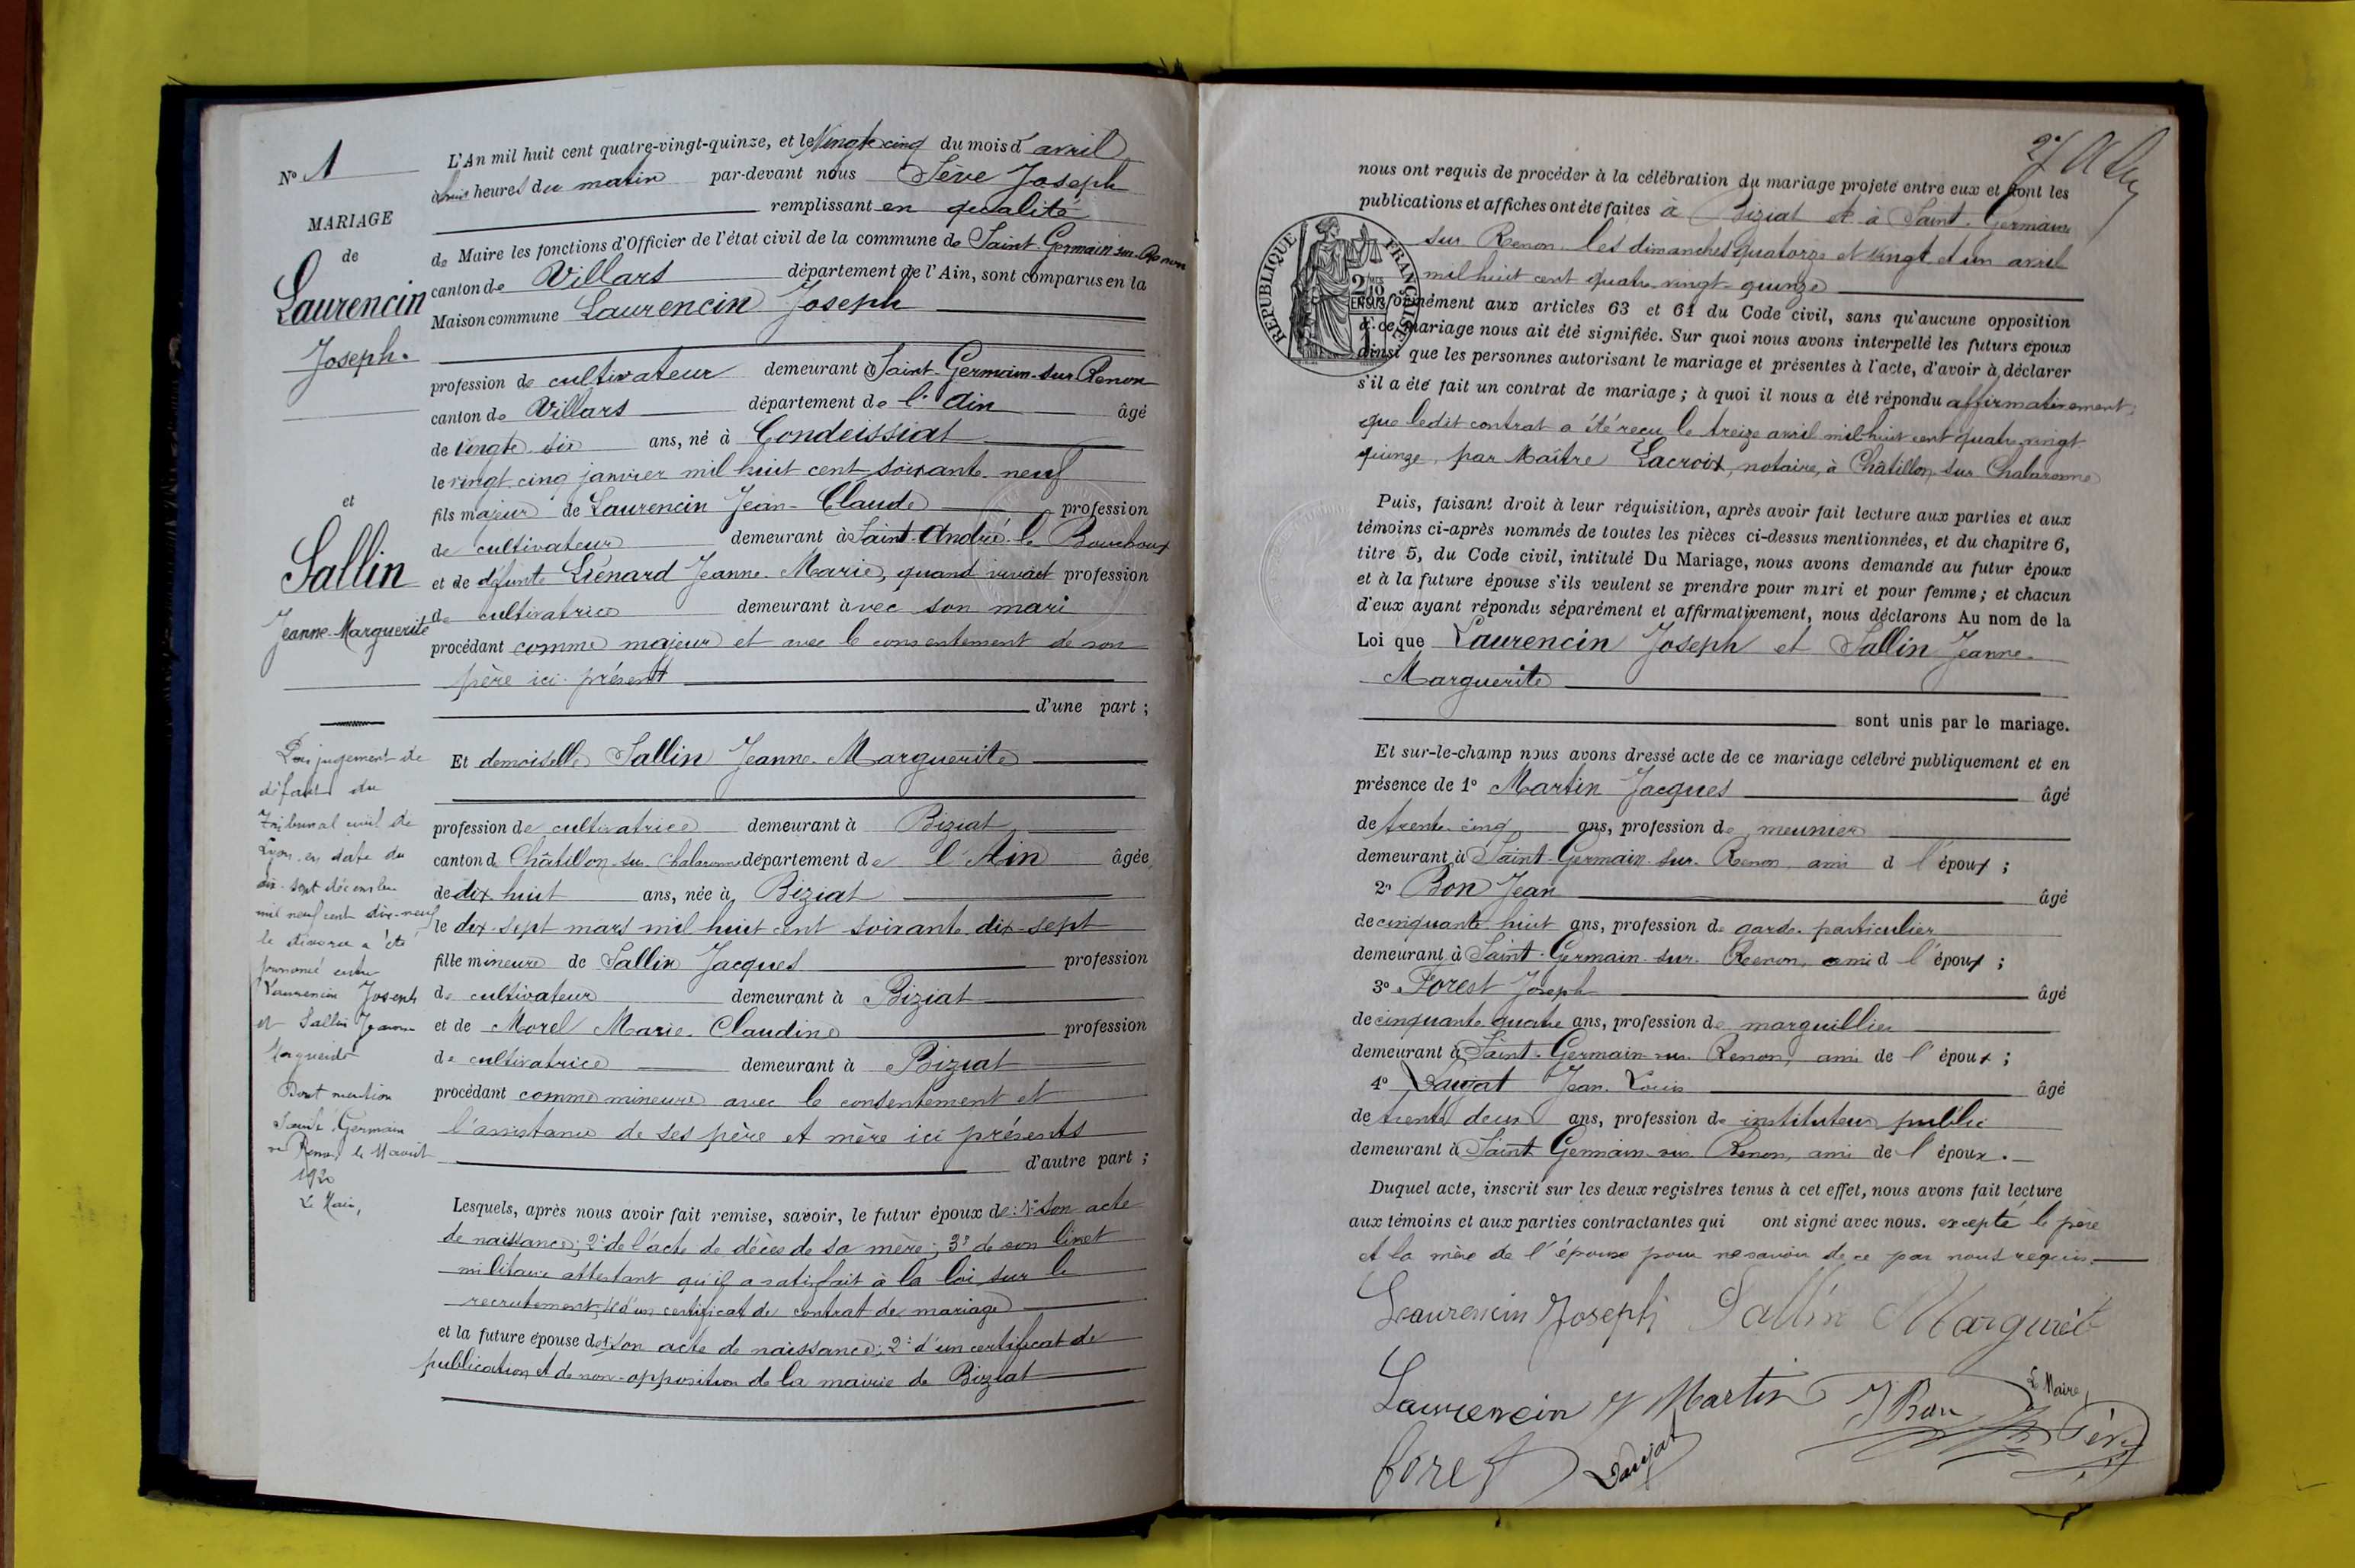 N° 1
MARIAGE
de
Laurencin
Joseph.
et
Sallin
Jeanne-Marguerite
Par jugement de
défaut du
Tribunal civil de
Lyon en date du
dix-sept décembre
mil neuf cent dix-neuf
le divorce a été
prononcé entre
Laurencin Joseph
et Sallin Jeanne
Marguerite
Dont mention
Saint Germain
sur Renon le 11 août
1920
Le Maire,
L'An mil huit cent quatre-vingt-quinze, et le Vingt-cinq du mois d'avril
à huit heures du matin par-devant nous Sève Joseph
remplissant en qualité
de Maire les fonctions d'Officier de l'état civil de la commune de Saint-Germain-sur-Renon
canton de Villars département de l'Ain, sont comparus en la
Maison commune Laurencin Joseph
profession de cultivateur demeurant à Saint-Germain-sur-Renon
canton de Villars département de l'Ain âgé
de vingt-six ans, né à Condeissiat
le vingt-cinq janvier mil huit cent soixante-neuf
fils majeur de Laurencin Jean-Claude profession
de cultivateur demeurant à Saint-André-le-Bouchoux
et de défunte Liénard Jeanne-Marie, quand vivait profession
de cultivatrice demeurant avec son mari
procédant comme majeur et avec le consentement de son
père ici présent
d'une part ;
Et demoiselle Sallin Jeanne-Marguerite
profession de cultivatrice demeurant à Biziat
canton de Châtillon-sur-Chalaronne département de l'Ain âgée
de dix-huit ans, née à Biziat
le dix-sept mars mil huit cent soixante-dix-sept
fille mineure de Sallin Jacques profession
de cultivateur demeurant à Biziat
et de Morel Marie-Claudine profession
de cultivatrice demeurant à Biziat
procédant comme mineure avec le consentement et
l'assistance de ses père et mère ici présents
d'autre part ;
Lesquels, après nous avoir fait remise, savoir, le futur époux de : 1° son acte
de naissance ; 2° de l'acte de décès de sa mère ; 3° de son livret
militaire attestant qu'il a satisfait à la loi sur le
recrutement ; 4° d'un certificat de contrat de mariage
et la future épouse de 1° son acte de naissance ; 2° d'un certificat de
publication et de non-opposition de la mairie de Biziat
nous ont requis de procéder à la célébration du mariage projeté entre eux et dont les
publications et affiches ont été faites à Biziat et à Saint-Germain
sur Renon les dimanches quatorze et vingt et un avril
mil huit cent quatre-vingt-quinze
RÉPUBLIQUE FRANÇAISE
2 10
EN SUS
conformément aux articles 63 et 64 du Code civil, sans qu'aucune opposition
à ce mariage nous ait été signifiée. Sur quoi nous avons interpellé les futurs époux
ainsi que les personnes autorisant le mariage et présentes à l'acte, d'avoir à déclarer
s'il a été fait un contrat de mariage ; à quoi il nous a été répondu affirmativement ;
que ledit contrat a été reçu le treize avril mil huit cent quatre-vingt
quinze, par Maître Lacroix, notaire, à Châtillon-sur-Chalaronne
Puis, faisant droit à leur réquisition, après avoir fait lecture aux parties et aux
témoins ci-après nommés de toutes les pièces ci-dessus mentionnées, et du chapitre 6,
titre 5, du Code civil, intitulé Du Mariage, nous avons demandé au futur époux
et à la future épouse s'ils veulent se prendre pour mari et pour femme ; et chacun
d'eux ayant répondu séparément et affirmativement, nous déclarons Au nom de la
Loi que Laurencin Joseph et Sallin Jeanne-
Marguerite
sont unis par le mariage.
Et sur-le-champ nous avons dressé acte de ce mariage célébré publiquement et en
présence de 1° Martin Jacques âgé
de trente-cinq ans, profession de meunier
demeurant à Saint-Germain-sur-Renon, ami d l'époux ;
2° Bon Jean âgé
de cinquante-huit ans, profession de garde-particulier
demeurant à Saint-Germain-sur-Renon, ami d l'époux ;
3° Forest Joseph âgé
de cinquante-quatre ans, profession de marguillier
demeurant à Saint-Germain-sur-Renon, ami de l'époux ;
4° Jean-Louis âgé
de trente-deux ans, profession de instituteur public
demeurant à Saint-Germain-sur-Renon, ami de l'époux.
Duquel acte, inscrit sur les deux registres tenus à cet effet, nous avons fait lecture
aux témoins et aux parties contractantes qui ont signé avec nous. excepté le père
et la mère de l'épouse pour ne savoir de ce par nous requis.
Laurencin Joseph Sallin Marguerite
Laurencin J Martin J Bon Le Maire,
Sève
forest